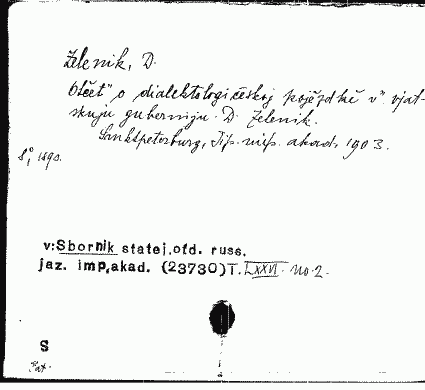 Zelenik, D.
Otčet" o dialektologičeskoj pojězdkě v" vjat-
skuju guberniju. D. Zelenik.
Sanktpeterburg, Tip. imp. akad. 1903.
8°, 1890.
v:Sbornik statej.otd. russ.
jaz. imp.akad. (23730)T. LXXVI. No 2.
S